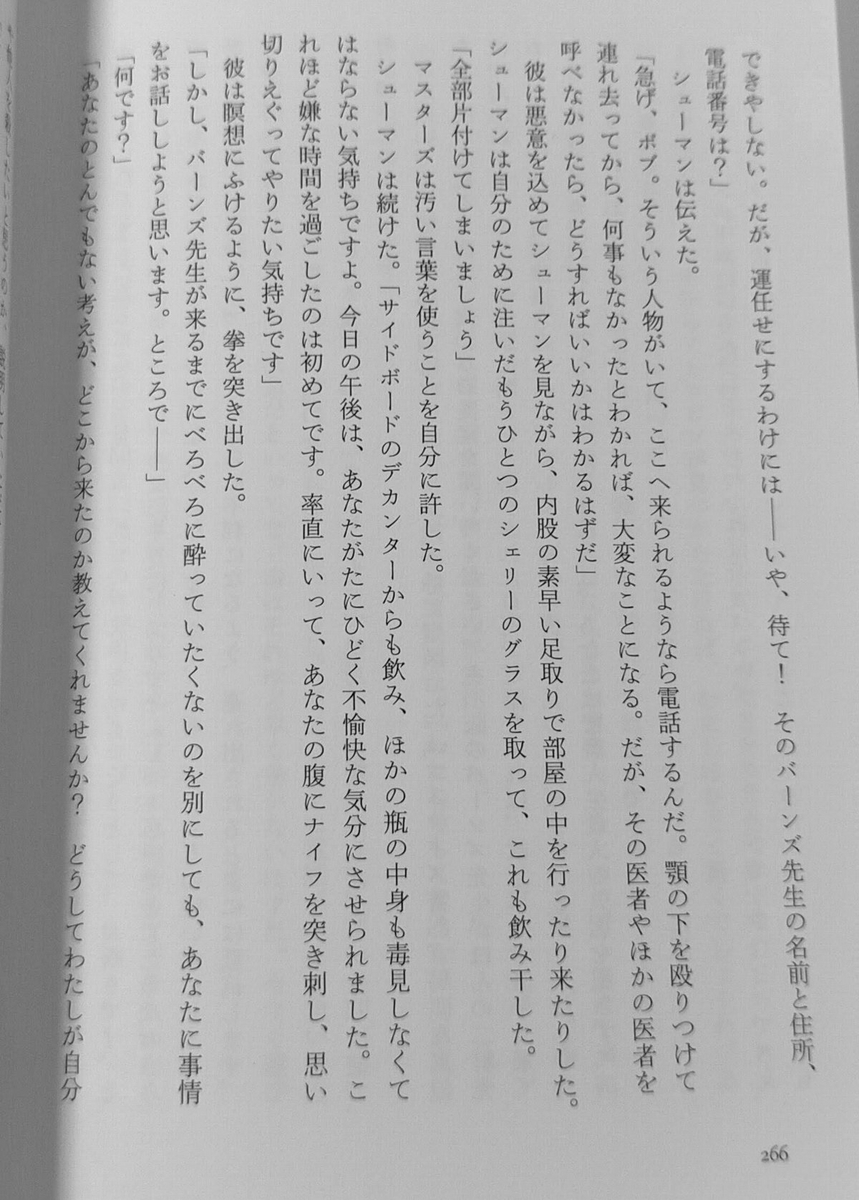 できやしない。だが、運任せにするわけには――いや、待て！　そのバーンズ先生の名前と住所、
電話番号は？」
シューマンは伝えた。
「急げ、ボブ。そういう人物がいて、ここへ来られるようなら電話するんだ。顎の下を殴りつけて
連れ去ってから、何事もなかったとわかれば、大変なことになる。だが、その医者やほかの医者を
呼べなかったら、どうすればいいかはわかるはずだ」
彼は悪意を込めてシューマンを見ながら、内股の素早い足取りで部屋の中を行ったり来たりした。
シューマンは自分のために注いだもうひとつのシェリーのグラスを取って、これも飲み干した。
「全部片付けてしまいましょう」
マスターズは汚い言葉を使うことを自分に許した。
シューマンは続けた。「サイドボードのデカンターからも飲み、ほかの瓶の中身も毒見しなくて
はならない気持ちですよ。今日の午後は、あなたがたにひどく不愉快な気分にさせられました。こ
れほど嫌な時間を過ごしたのは初めてです。率直にいって、あなたの腹にナイフを突き刺し、思い
切りえぐってやりたい気持ちです」
彼は瞑想にふけるように、拳を突き出した。
「しかし、バーンズ先生が来るまでにべろべろに酔っていたくないのを別にしても、あなたに事情
をお話ししようと思います。ところで――」
「何です？」
「あなたのとんでもない考えが、どこから来たのか教えてくれませんか？　どうしてわたしが自分
266